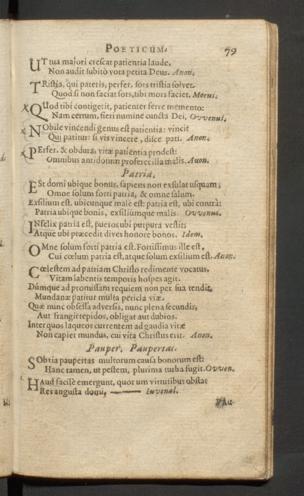 POETICUM. 79
UT tua maiori crescat patientia laude,
Non audit subitò vota petita Deus. Anon.
TRistia, qui pateris, perfer, sors tristia solvet.
Quod si non faciat sors, tibi mors faciet. Morus.
QUod tibi contigerit, patienter ferre memento:
Nam cernum, fieri numine cuncta Dei, Ovvenus.
NObile vincendi genus est patientia: vincit
Qui patitur: si vis vincere, disce pati. Anon.
PErfer, & obdura; vitæ patientia prodest:
Omnibus antidotum profert illa malis. Anon.
Patria.
ESt domi ubique bonus, sapiens non exsulat usquam;
Omne solum forti patria, & omne salum.
Exsilium est, ubicunque male est: patria est, ubi contrà:
Patria ubique bonis, exsiliumque malis. Ovvenus.
INfelix patria est, pueros ubi purpura vestit;
Atque ubi præcedit dives honore bonos. Idem.
OMne solum forti patria est. Fortissimus ille est,
Cui cœlum patria est, atque solum exsilium est. Anon.
COelestem ad patriam Christo redimente vocatus,
Vitam labentis temporis hospes agit.
Dumque ad promissam requiem non per sua tendit,
Mundanæ patitur multa pericla viæ.
Quæ nunc obsessa adversis, nunc plena secundis,
Aut frangit trepidos, obligat aut dubios.
Inter quos laqueos currentem ad gaudia vitæ
Non capier mundus, cui vita Christus erit. Anon.
Pauper, Paupertas.
SObria paupertas multorum causa bonorum est:
Hanc tamen, ut pestem, plurima turba fugit. Ovven.
HAud facilè emergunt, quorum virtutibus obstat
Res angusta domi, — Iuvenal.